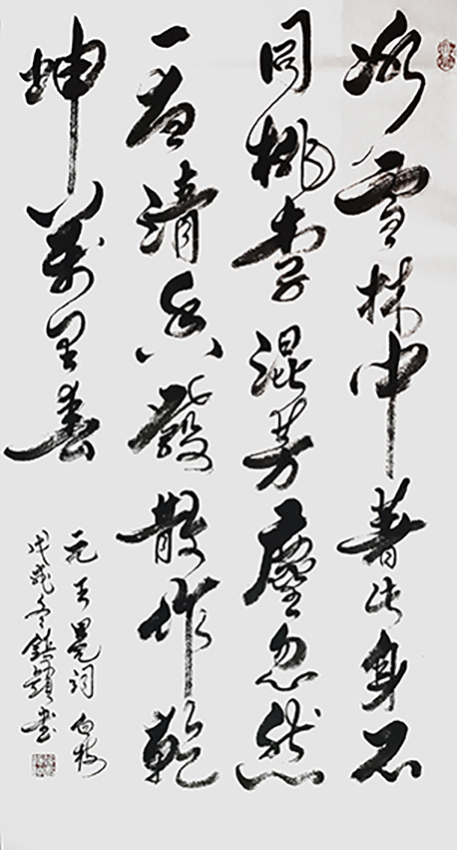 冰雪林中著此身不
同桃李混芳塵忽然
一夜清香發散作乾
坤萬里春
元王冕詞白梅
戊戌冬書